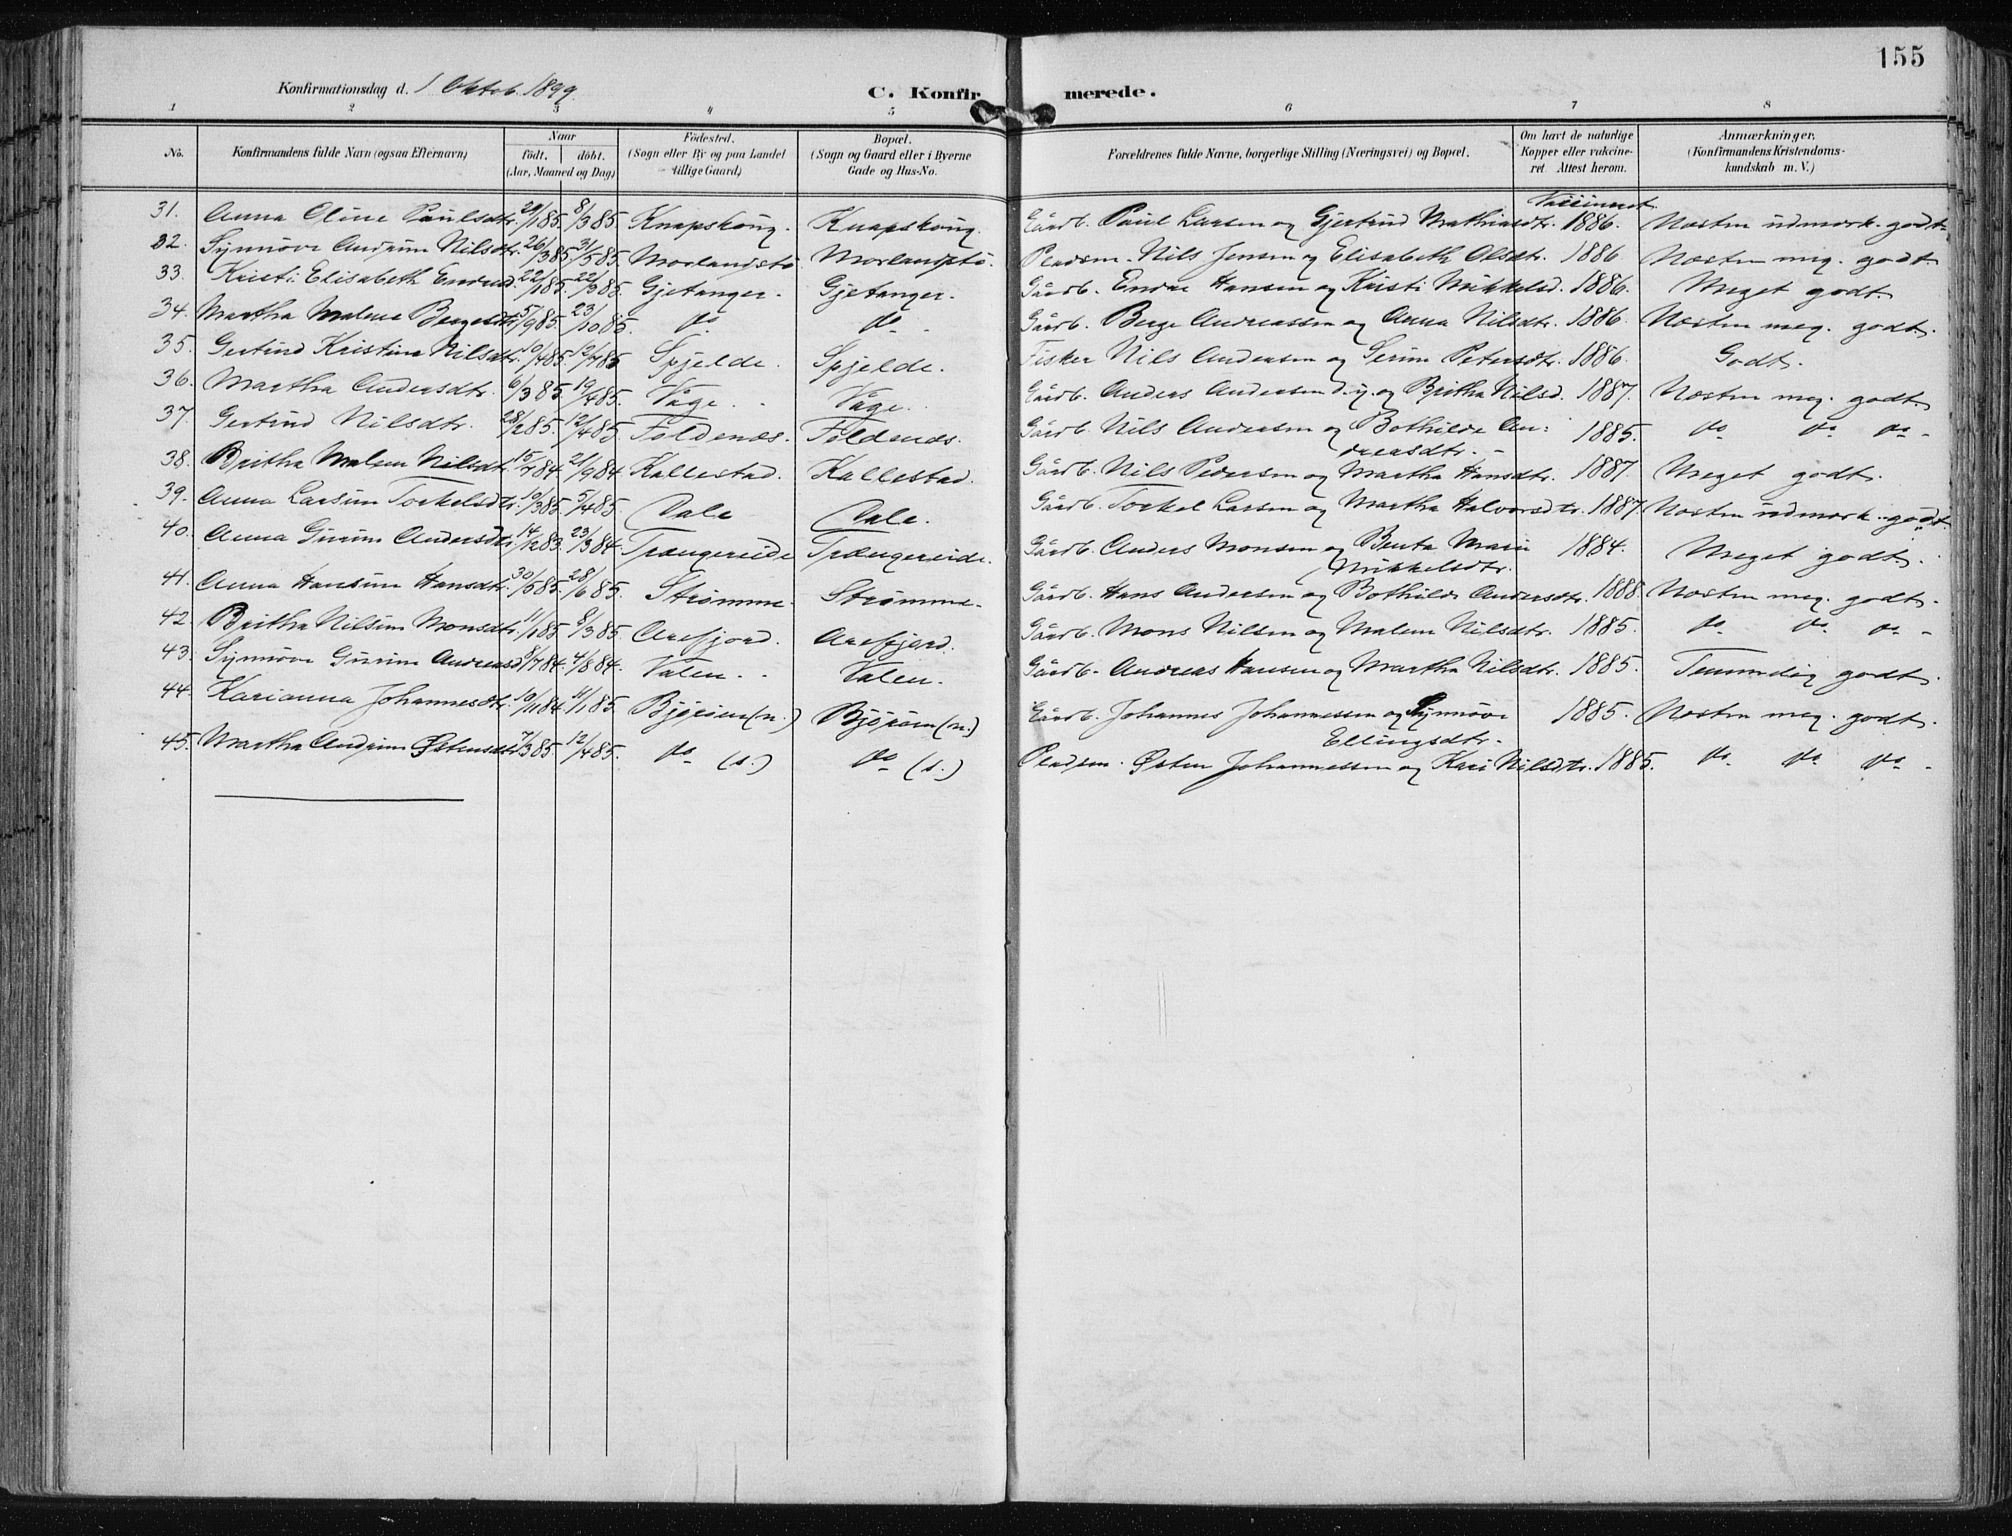 155
Konfirmationsdag d. 1 Oktob. 1899.
C. Konfirmerede.
1 2 3 4 5 6 7 8
No. Konfirmandens fulde Navn (ogsaa Efternavn) Naar født, døbt. (Aar, Maaned og Dag) Fødested. (Sogn eller By og paa Landet tillige Gaard) Bopæl. (Sogn og Gaard eller i Byerne Gade og Hus-No. Forældrenes fulde Navne, borgerlige Stilling (Næringsvei) og Bopæl. Om havt de naturlige Kopper eller vakcineret Attest herom. Anmærkninger. (Konfirmandens Kristendomskundskab m. V.)
Vaccineret
31. Anna Oline Paulsdtr. 8/3 85. Knapskoug. Knapskoug. Gårdb. Paul Larsen og Gjertrud Mathiasdtr. 1886. Næsten udmærk. godt.
32. Synnøve Andrine Nilsdtr. 26/3 85. 31/5 85. Morlandstø Morlandstø. Pladsm. Nils Jensen og Elisabeth Olsdtr. 1886. Næsten meg. godt.
33. Kristi Elisabeth Endresd. 22/1 85. 22/3 85. Gjetanger. Gjetanger. Gårdb. Endre Hansen og Kristi Mikkelsd. 1886. Meget godt.
34. Martha Malene Bergesdtr. 5/9 85. 23/10 85. do. do. Gårdb. Berge Andreassen og Anna Nilsdtr. 1886. Næsten meg. godt.
35. Gertrud Kristine Nilsdtr. 12/7 85 Spjelde. Spjelde. Fisker Nils Andersen og Serine Petersdtr. 1886. Godt.
36. Martha Andersdtr. 6/3 85. 19/4 85. Våge. Våge. Gårdb. Anders Andersen d. y. og Britha Nilsd. 1887. Næsten meg. godt.
37. Gertrud Nilsdtr. 28/2 85. 12/4 85. Foldenæs. Foldenæs. Gårdb. Nils Andersen og Bothilde An-
dreasdtr. 1885. do. do. do.
38. Britha Malene Nilsdtr. 15/7 84. 21/9 84. Kallestad. Kallestad. Gårdb. Nils Pedersen og Martha Hansdtr. 1887. Meget godt.
39. Anna Larsine Torkelsdtr. 10/3 85. 5/4 85. Dale Dale. Gårdb. Torkel Larsen og Martha Halvorsdtr. 1887. Næsten udmærk. godt.
40. Anna Gurine Andersdtr. 14/12 83. 23/3 84. Trængereide Trængereide. Gårdb. Anders Monsen og Benta Marie
Mikkelsdtr. 1884. Meget godt.
41. Anna Hansine Hansdtr. 30/5 85. 28/6 85. Strømme. Strømme. Gårdb. Hans Andersen og Bothilde Andersdtr. 1888. Næsten meg. godt.
42. Britha Nilsine Monsdtr. 11/1 85. 8/3 85. Arefjord. Arefjord. Gårdb. Mons Nilsen og Malene Nilsdtr. 1885. do. do. do.
43. Synnøve Gurine Andreasd. 8/7 84. 4/8 84. Valen. Valen. Gårdb. Andreas Hansen og Martha Nilsdtr. 1885. Temmelig godt.
44. Karianna Johannesdtr. 10/11 84. 11/1 85. Bjørøen (n.) Bjørøen (n.) Gårdb. Johannes Johannessen og Synnøve
Ellingsdtr. 1885. Næsten meg. godt.
45. Martha Andrine Østensdtr. 7/3 85. 12/4 85. do (s.) do (s.) Pladsm. Østen Johannessen og Kari Nilsdtr. 1885. do. do. do.